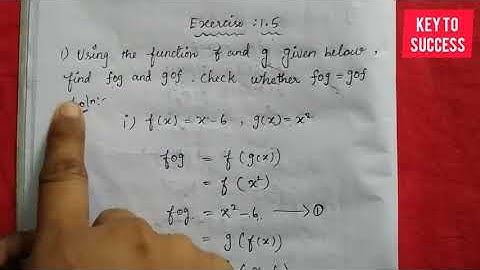 Exercise : 1.5
KEY TO
SUCCESS
1) Using the function f and g given below,
find fog and gof. Check whether fog = gof
Soln:-
i) f(x) = x-6 , g(x) = x²
fog = f(g(x))
= f(x²)
fog = x²-6. → ①
= g(f(x))